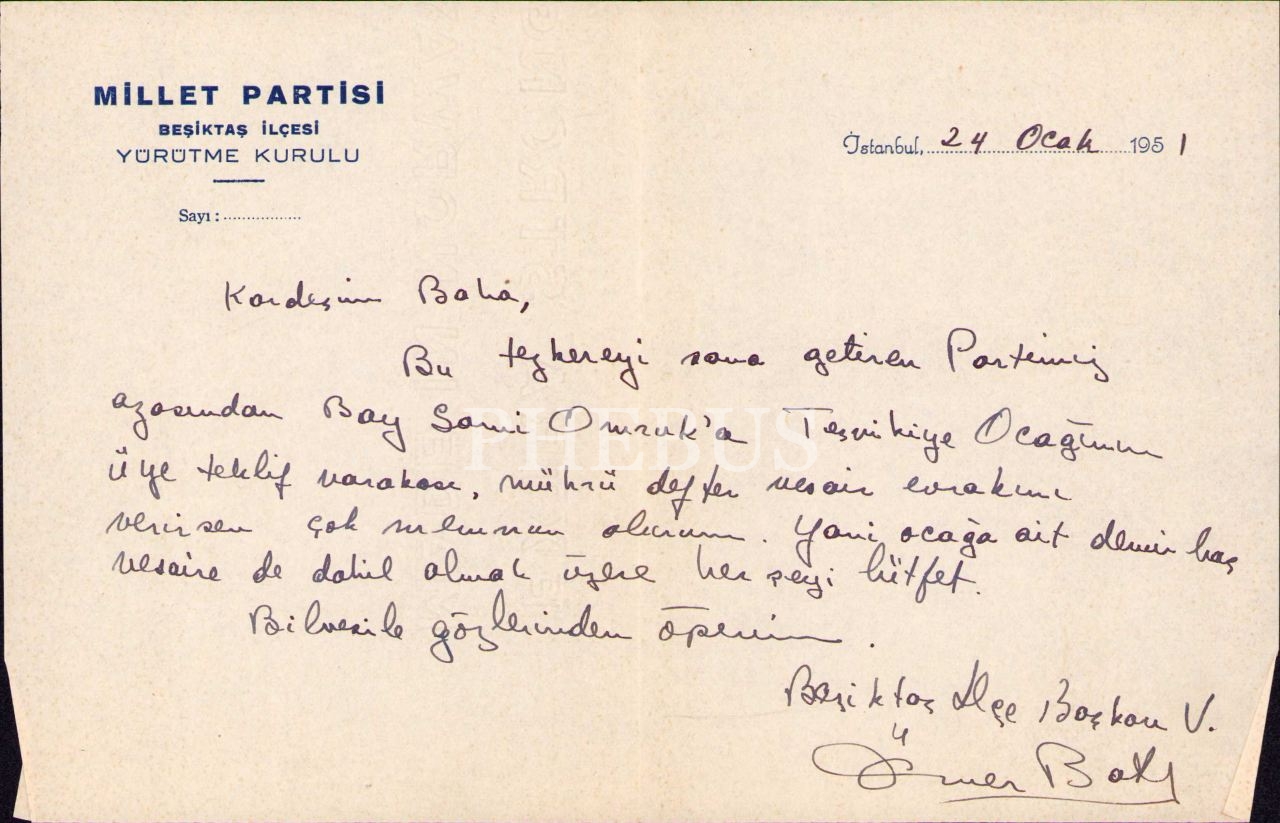 MİLLET PARTİSİ
BEŞİKTAŞ İLÇESİ
YÜRÜTME KURULU
Sayı : ...................
İstanbul, 24 Ocak 1951
Kardeşim Baha,
Bu tezkereyi sana getiren Partimiz
azasından Bay Sami Omruk'a Teşvikiye Ocağının
üye teklif varakası, mührü defter vesair evrakını
verirsen çok memnun olurum. Yani ocağa ait demir baş
vesaire de dahil olmak üzere her şeyi lütfet.
Bilvesile gözlerinden öperim.
Beşiktaş İlçe Başkan V.
Ömer
PHEBUS